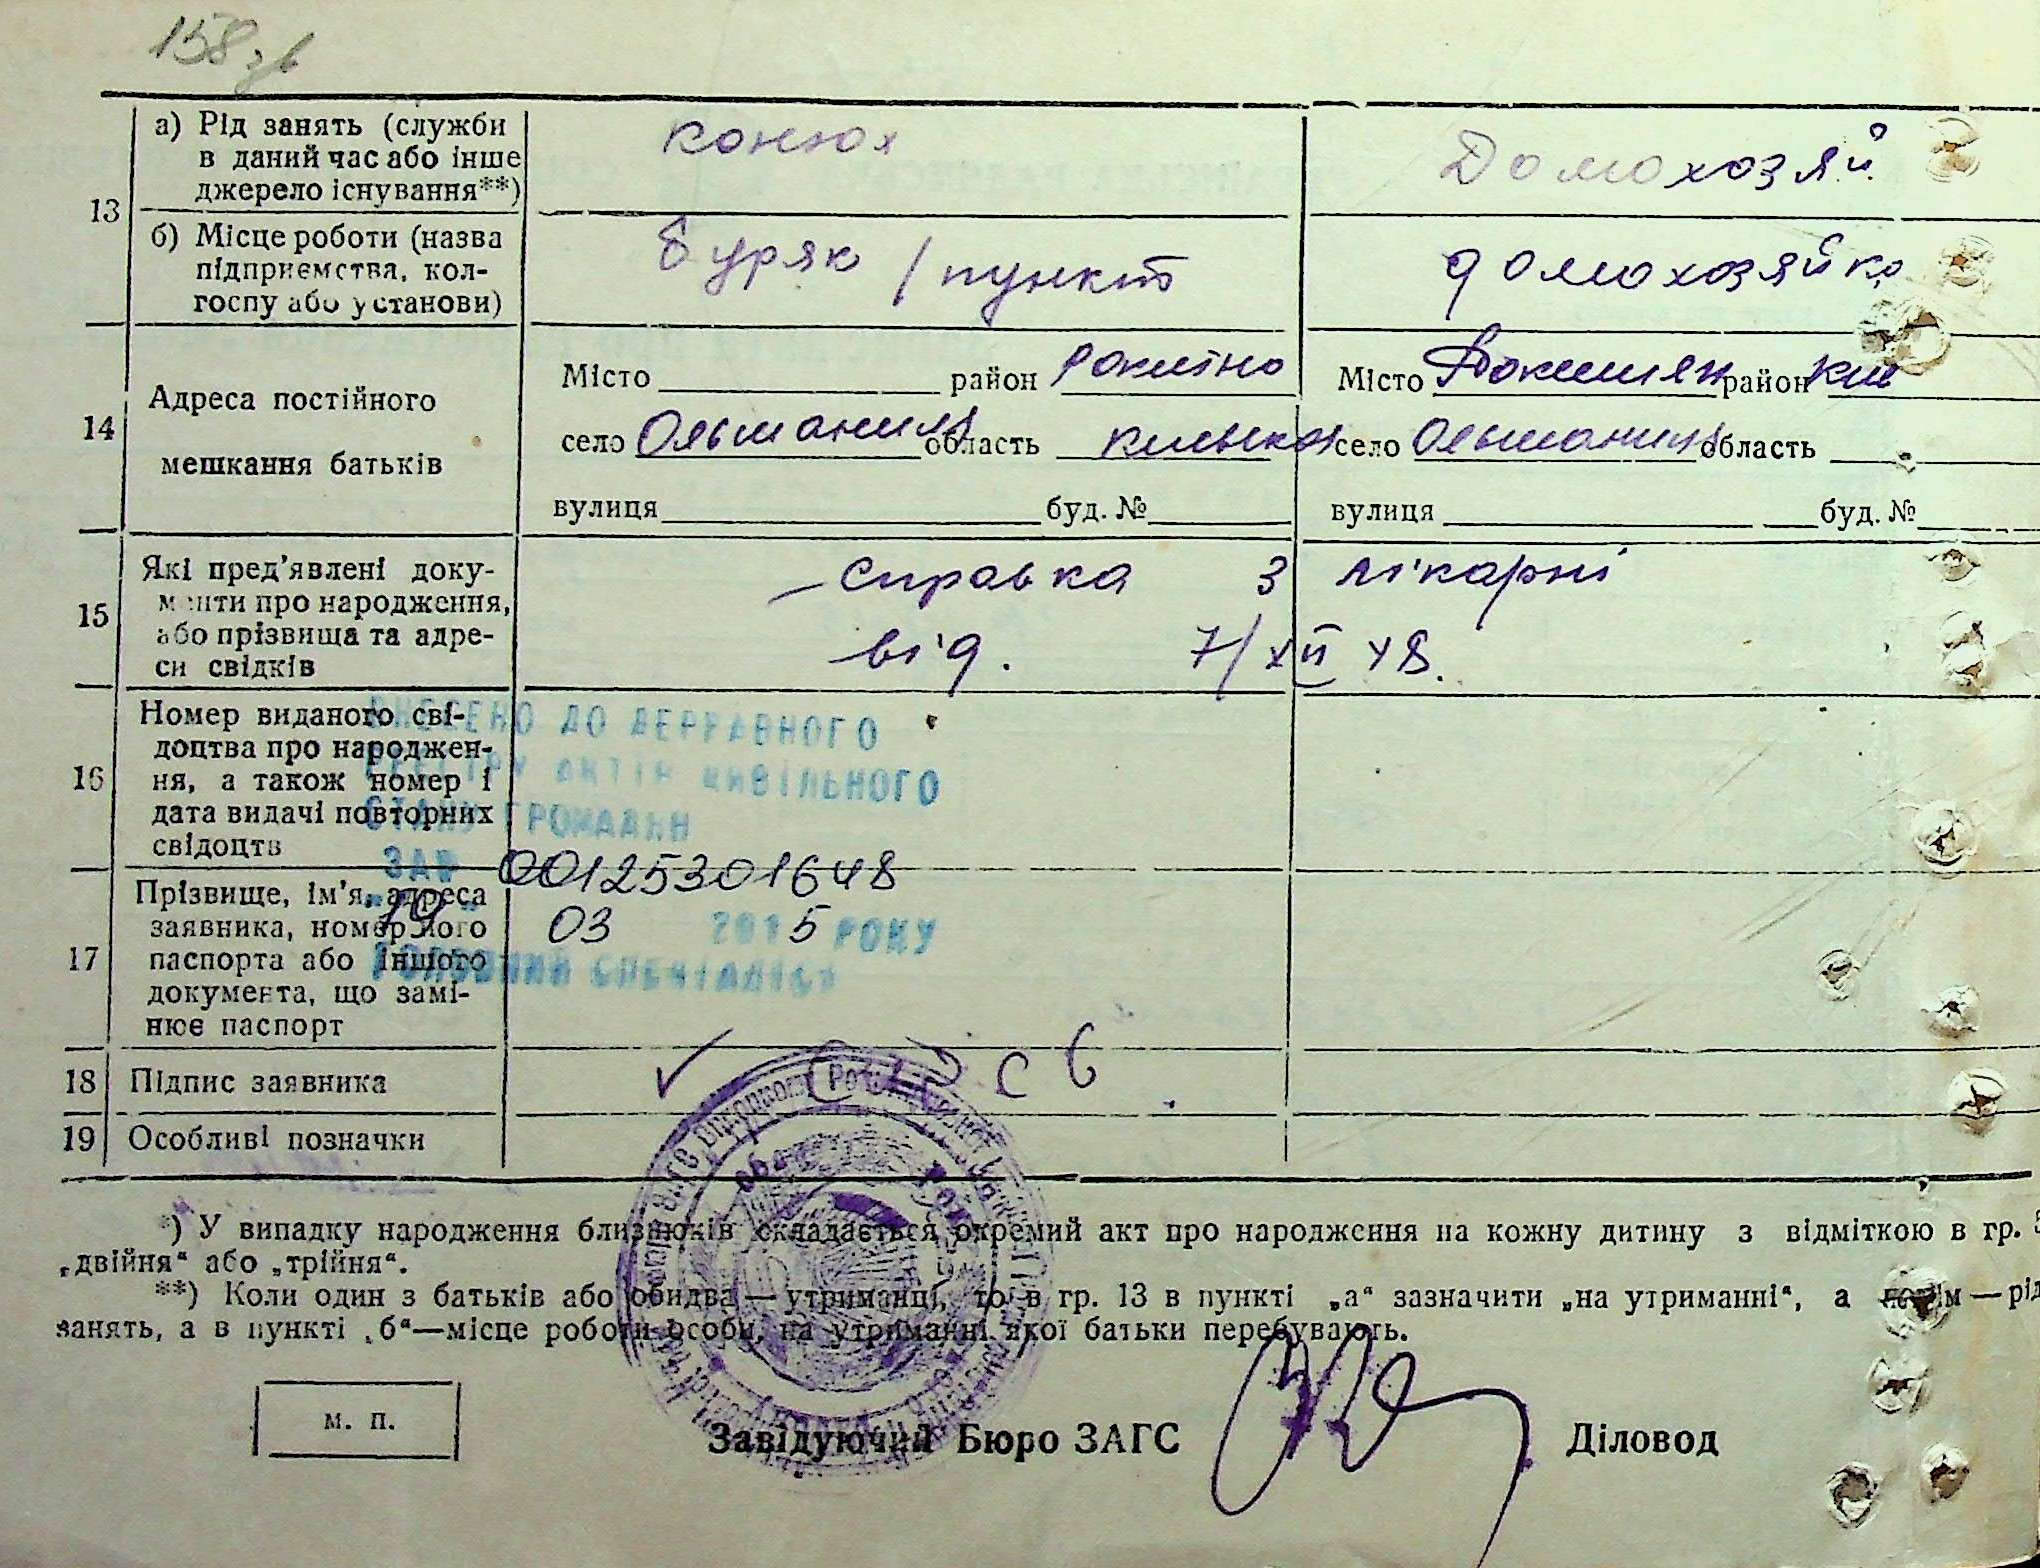 158 зв
а) Рід занять (служби
в даний час або інше
джерело існування**)
конюх
Домохозяй
13
б) Місце роботи (назва
підприємства, кол-
госпу або установи)
буряк / пункт
домохозяйка
14
Адреса постійного
мешкання батьків
Місто район Рокитно
село область
вулиця буд. №
Місто район Киє
село область
вулиця буд. №
15
Які пред'явлені доку-
менти про народження,
або прізвища та адре-
си свідків
справка з лікарні
від. 7/XII 48.
16
Номер виданого сві-
доцтва про народжен-
ня, а також номер і
дата видачі повторних
свідоцтв
ВНЕСЕНО ДО ДЕРЖАВНОГО
РЕЄСТРУ АКТІВ ЦИВІЛЬНОГО
СТАНУ ГРОМАДЯН
ЗА № 00125301648
19 03 2015 РОКУ
ГОЛОВНИЙ СПЕЦІАЛІСТ
17
Прізвище, ім'я, адреса
заявника, номер його
паспорта або іншого
документа, що замі-
нює паспорт
18 Підпис заявника
19 Особливі позначки
*) У випадку народження близнюків складається окремий акт про народження на кожну дитину з відміткою в гр. 3
„двійня“ або „трійня“.
**) Коли один з батьків або обидва — утриманці, то в гр. 13 в пункті „а“ зазначити „на утриманні“, а потім — рід
занять, а в пункті „б“—місце роботи особи, на утриманні якої батьки перебувають.
м. п.
Завідуючий Бюро ЗАГС
Діловод